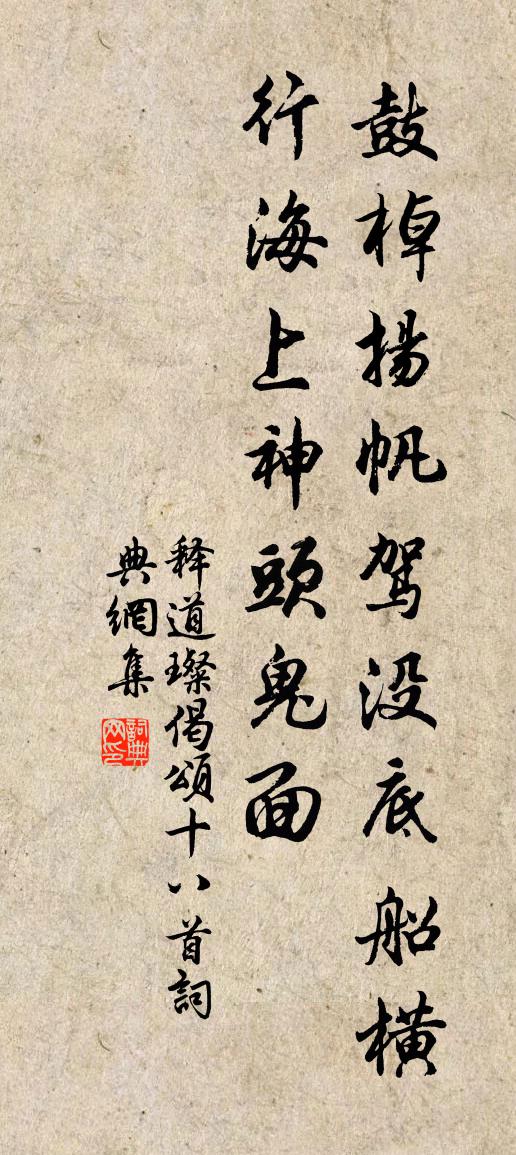 鼓棹揚帆駕没底船橫
行海上神頭鬼面
释道璨偈頌十八首詞
典網集
詞典
网印